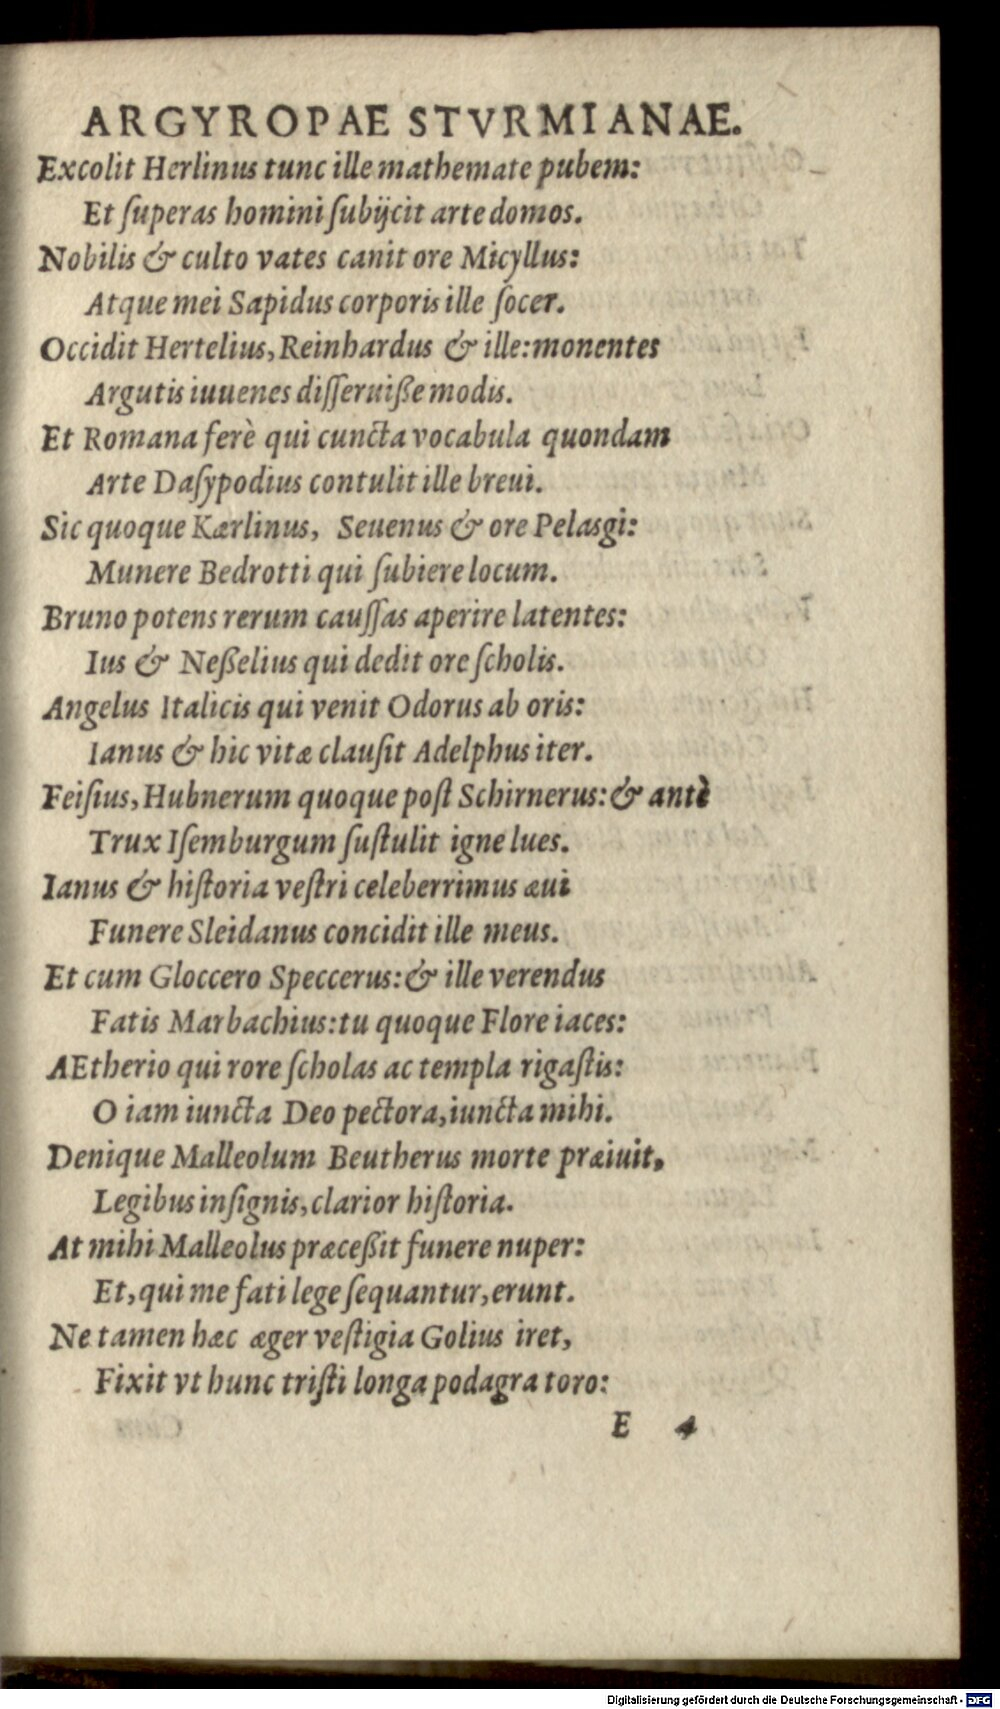 ARGYROPAE STVRMIANAE.
Excolit Herlinus tunc ille mathemate pubem:
Et ſuperas homini ſubijcit arte domos.
Nobilis & culto vates canit ore Micyllus:
Atque mei Sapidus corporis ille ſocer.
Occidit Hertelius, Reinhardus & ille: monentes
Argutis iuuenes diſſeruiße modis.
Et Romana ferè qui cuncta vocabula quondam
Arte Daſypodius contulit ille breui.
Sic quoque Kærlinus, Seuenus & ore Pelasgi:
Munere Bedrotti qui ſubiere locum.
Bruno potens rerum cauſſas aperire latentes:
Ius & Neßelius qui dedit ore ſcholis.
Angelus Italicis qui venit Odorus ab oris:
Ianus & hic vitæ clauſit Adelphus iter.
Feiſius, Hubnerum quoque poſt Schirnerus: & antè
Trux Iſemburgum ſuſtulit igne lues.
Ianus & hiſtoria veſtri celeberrimus æui
Funere Sleidanus concidit ille meus.
Et cum Gloccero Speccerus: & ille verendus
Fatis Marbachius: tu quoque Flore iaces:
AEtherio qui rore ſcholas ac templa rigaſtis:
O iam iuncta Deo pectora, iuncta mihi.
Denique Malleolum Beutherus morte præiuit,
Legibus inſignis, clarior hiſtoria.
At mihi Malleolus præceßit funere nuper:
Et, qui me fati lege ſequantur, erunt.
Ne tamen hæc æger veſtigia Golius iret,
Fixit vt hunc triſti longa podagra toro:
E 4
Digitalisierung gefördert durch die Deutsche Forschungsgemeinschaft - DFG